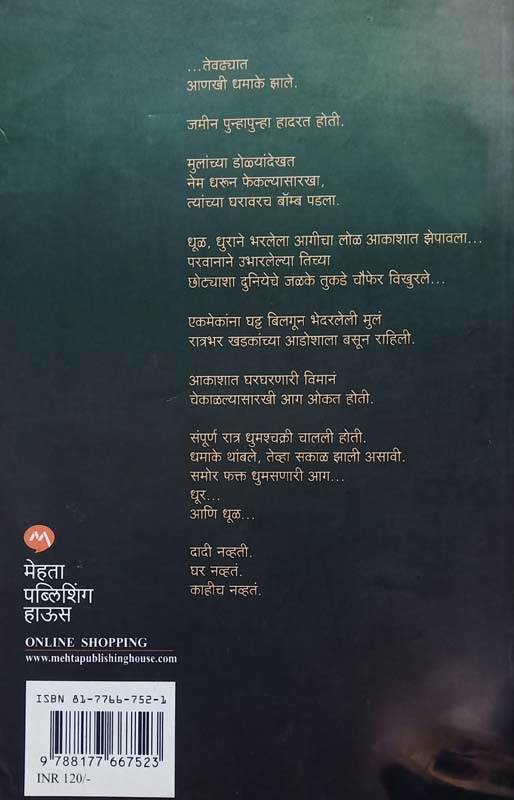 ...तेवढ्यात
आणखी धमाके झाले.
जमीन पुन्हापुन्हा हादरत होती.
मुलांच्या डोळ्यांदेखत
नेम धरून फेकल्यासारखा,
त्यांच्या घरावरच बॉम्ब पडला.
धूळ, धुराने भरलेला आगीचा लोळ आकाशात झेपावला...
परवानाने उभारलेल्या तिच्या
छोट्याशा दुनियेचे जळके तुकडे चौफेर विखुरले...
एकमेकांना घट्ट बिलगून भेदरलेली मुलं
रात्रभर खडकांच्या आडोशाला बसून राहिली.
आकाशात घरघरणारी विमानं
चेकाळल्यासारखी आग ओकत होती.
संपूर्ण रात्र धुमश्चक्री चालली होती.
धमाके थांबले, तेव्हा सकाळ झाली असावी.
समोर फक्त धुमसणारी आग...
धूर...
आणि धूळ...
दादी नव्हती.
घर नव्हतं.
काहीच नव्हतं.
मेहता
पब्लिशिंग
हाऊस
ONLINE SHOPPING
www.mehtapublishinghouse.com
ISBN 81-7766-752-1
9 788177 667523
INR 120/-